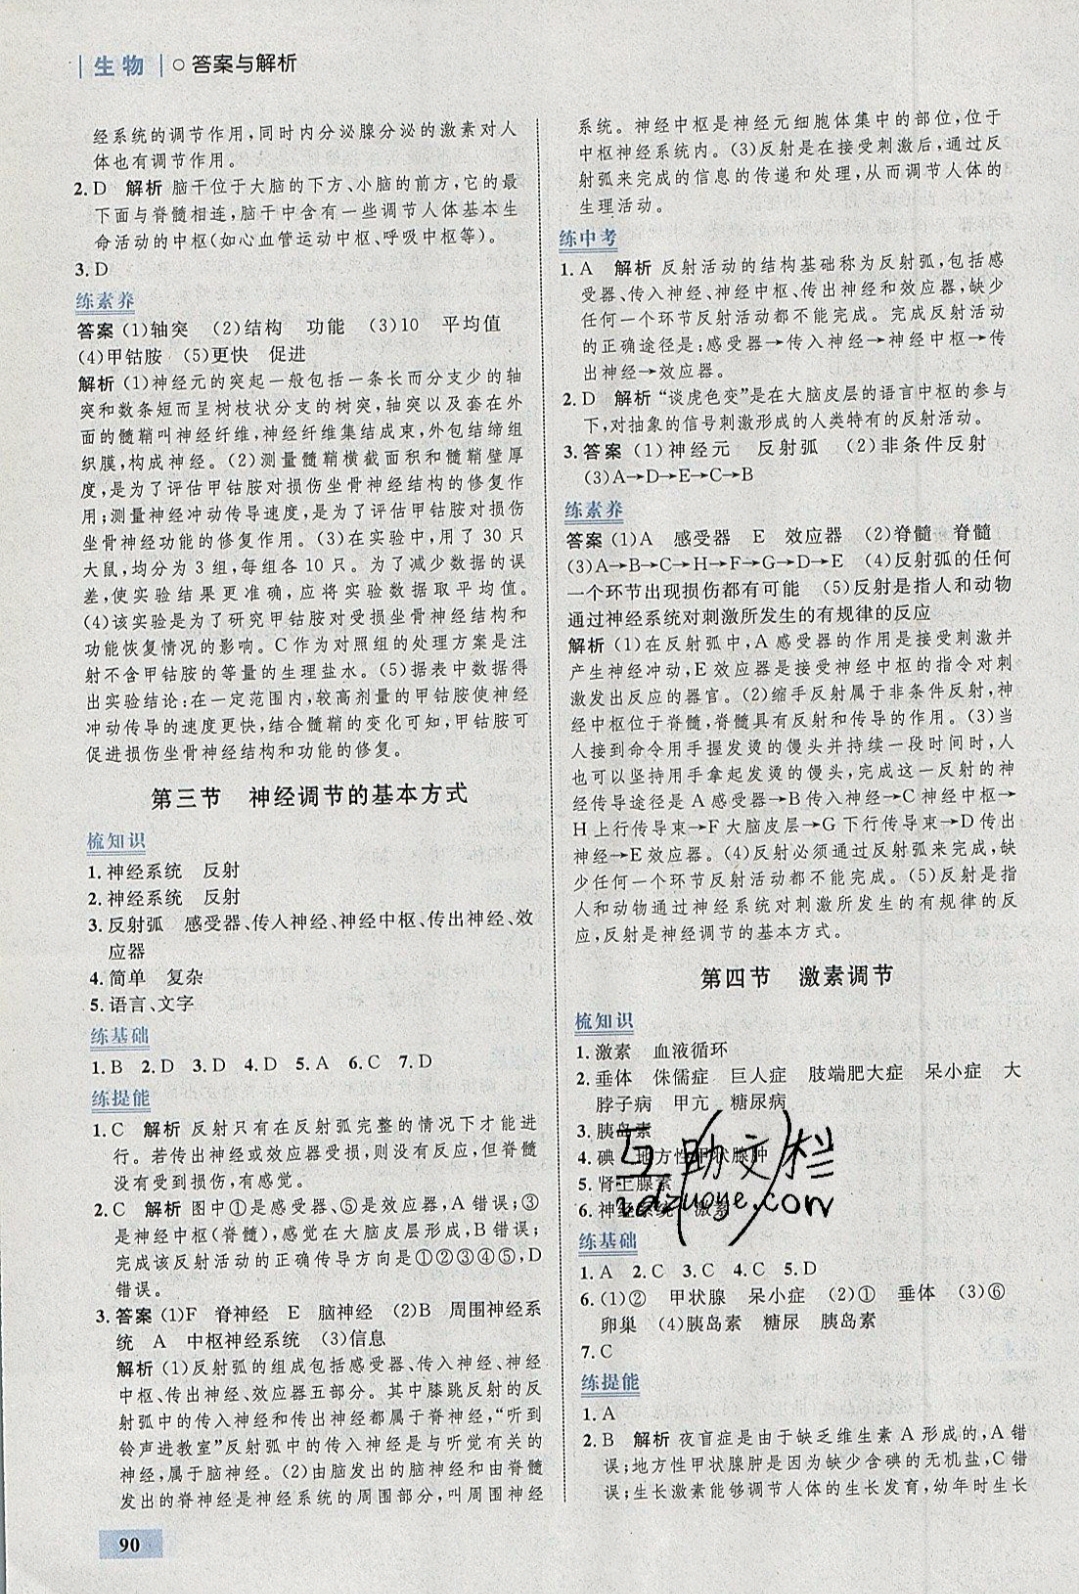 生物 答案与解析
经系统的调节作用,同时内分泌腺分泌的激素对人
体也有调节作用。
2. D 解析 脑干位于大脑的下方、小脑的前方,它的最
下面与脊髓相连,脑干中含有一些调节人体基本生
命活动的中枢(如心血管运动中枢、呼吸中枢等)。
3. D
练素养
答案 (1)轴突 (2)结构 功能 (3)10 平均值
(4)甲钴胺 (5)更快 促进
解析 (1)神经元的突起一般包括一条长而分支少的轴
突和数条短而呈树枝状分支的树突,轴突以及套在外
面的髓鞘叫神经纤维,神经纤维集结成束,外包结缔组
织膜,构成神经。(2)测量髓鞘横截面积和髓鞘壁厚
度,是为了评估甲钴胺对损伤坐骨神经结构的修复作
用;测量神经冲动传导速度,是为了评估甲钴胺对损伤
坐骨神经功能的修复作用。(3)在实验中,用了 30 只
大鼠,均分为 3 组,每组各 10 只。为了减少数据的误
差,使实验结果更准确,应将实验数据取平均值。
(4)该实验是为了研究甲钴胺对受损坐骨神经结构和
功能恢复情况的影响。C 作为对照组的处理方案是注
射不含甲钴胺的等量的生理盐水。(5)据表中数据得
出实验结论:在一定范围内,较高剂量的甲钴胺使神经
冲动传导的速度更快,结合髓鞘的变化可知,甲钴胺可
促进损伤坐骨神经结构和功能的修复。
第三节 神经调节的基本方式
梳知识
1. 神经系统 反射
2. 神经系统 反射
3. 反射弧 感受器、传入神经、神经中枢、传出神经、效
应器
4. 简单 复杂
5. 语言、文字
练基础
1. B 2. D 3. D 4. D 5. A 6. C 7. D
练提能
1. C 解析 反射只有在反射弧完整的情况下才能进
行。若传出神经或效应器受损,则没有反应,但脊髓
没有受到损伤,有感觉。
2. C 解析 图中①是感受器、⑤是效应器,A 错误;③
是神经中枢(脊髓),感觉在大脑皮层形成,B 错误;
完成该反射活动的正确传导方向是①②③④⑤,D
错误。
3. 答案 (1)F 脊神经 E 脑神经 (2)B 周围神经系
统 A 中枢神经系统 (3)信息
解析 (1)反射弧的组成包括感受器、传入神经、神经
中枢、传出神经、效应器五部分。其中膝跳反射的反
射弧中的传入神经和传出神经都属于脊神经,“听到
铃声进教室”反射弧中的传入神经是与听觉有关的
神经,属于脑神经。(2)由脑发出的脑神经和由脊髓
发出的脊神经是神经系统的周围部分,叫周围神经
系统。神经中枢是神经元细胞体集中的部位,位于
中枢神经系统内。(3)反射是在接受刺激后,通过反
射弧来完成的信息的传递和处理,从而调节人体的
生理活动。
练中考
1. A 解析 反射活动的结构基础称为反射弧,包括感
受器、传入神经、神经中枢、传出神经和效应器,缺少
任何一个环节反射活动都不能完成。完成反射活动
的正确途径是:感受器→传入神经→神经中枢→传
出神经→效应器。
2. D 解析 “谈虎色变”是在大脑皮层的语言中枢的参与
下,对抽象的信号刺激形成的人类特有的反射活动。
3. 答案 (1)神经元 反射弧 (2)非条件反射
(3)A→D→E→C→B
练素养
答案 (1)A 感受器 E 效应器 (2)脊髓 脊髓
(3)A→B→C→H→F→G→D→E (4)反射弧的任何
一个环节出现损伤都有可能 (5)反射是指人和动物
通过神经系统对刺激所发生的有规律的反应
解析 (1)在反射弧中,A 感受器的作用是接受刺激并
产生神经冲动,E 效应器是接受神经中枢的指令对刺
激发出反应的器官。(2)缩手反射属于非条件反射,神
经中枢位于脊髓,脊髓具有反射和传导的作用。(3)当
人接到命令用手握发烫的馒头并持续一段时间时,人
也可以坚持用手拿起发烫的馒头,完成这一反射的神
经传导途径是 A 感受器→B 传入神经→C 神经中枢→
H 上行传导束→F 大脑皮层→G 下行传导束→D 传出
神经→E 效应器。(4)反射必须通过反射弧来完成,缺
少任何一个环节反射活动都不能完成。(5)反射是指
人和动物通过神经系统对刺激所发生的有规律的反
应,反射是神经调节的基本方式。
第四节 激素调节
梳知识
1. 激素 血液循环
2. 垂体 侏儒症 巨人症 肢端肥大症 呆小症 大
脖子病 甲亢 糖尿病
3. 胰岛素
4. 碘 地方性甲状腺肿
5. 肾上腺素
6. 神经系统 激素
互助文栏
idzuoye.com
练基础
1. A 2. C 3. C 4. C 5. D
6. (1)② 甲状腺 呆小症 (2)① 垂体 (3)⑥
卵巢 (4)胰岛素 糖尿 胰岛素
7. C
练提能
1. A
2. B 解析 夜盲症是由于缺乏维生素 A 形成的,A 错
误;地方性甲状腺肿是因为缺少含碘的无机盐,C 错
误;生长激素能够调节人体的生长发育,幼年时生长
90